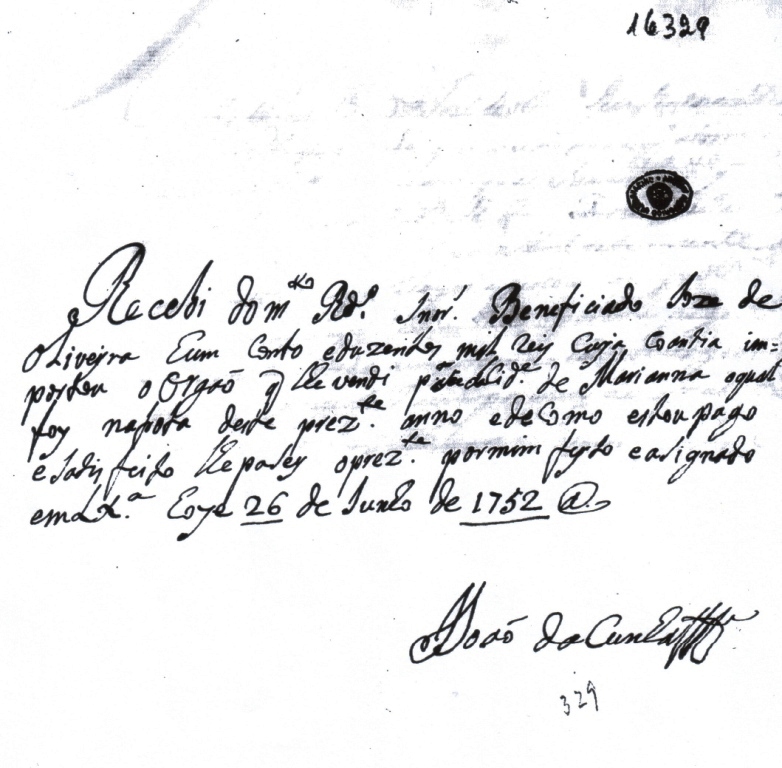 16329
Recebi do m.to R.do Snnr. Beneficiado Joze de
oliveyra hum Conto e duzentos mil reis Cuja Coantia im=
portou o Orgaõ q lhe vendi p.a a Cid.e de Marianna o qual
foy na frota deste prez.te anno e de Como estou pago
e sadisfeito lhe pasey o prez.te por mim feyto e asignado
em Lx.a hoye 26 de Junho de 1752 @
Joaõ da Cunha
329